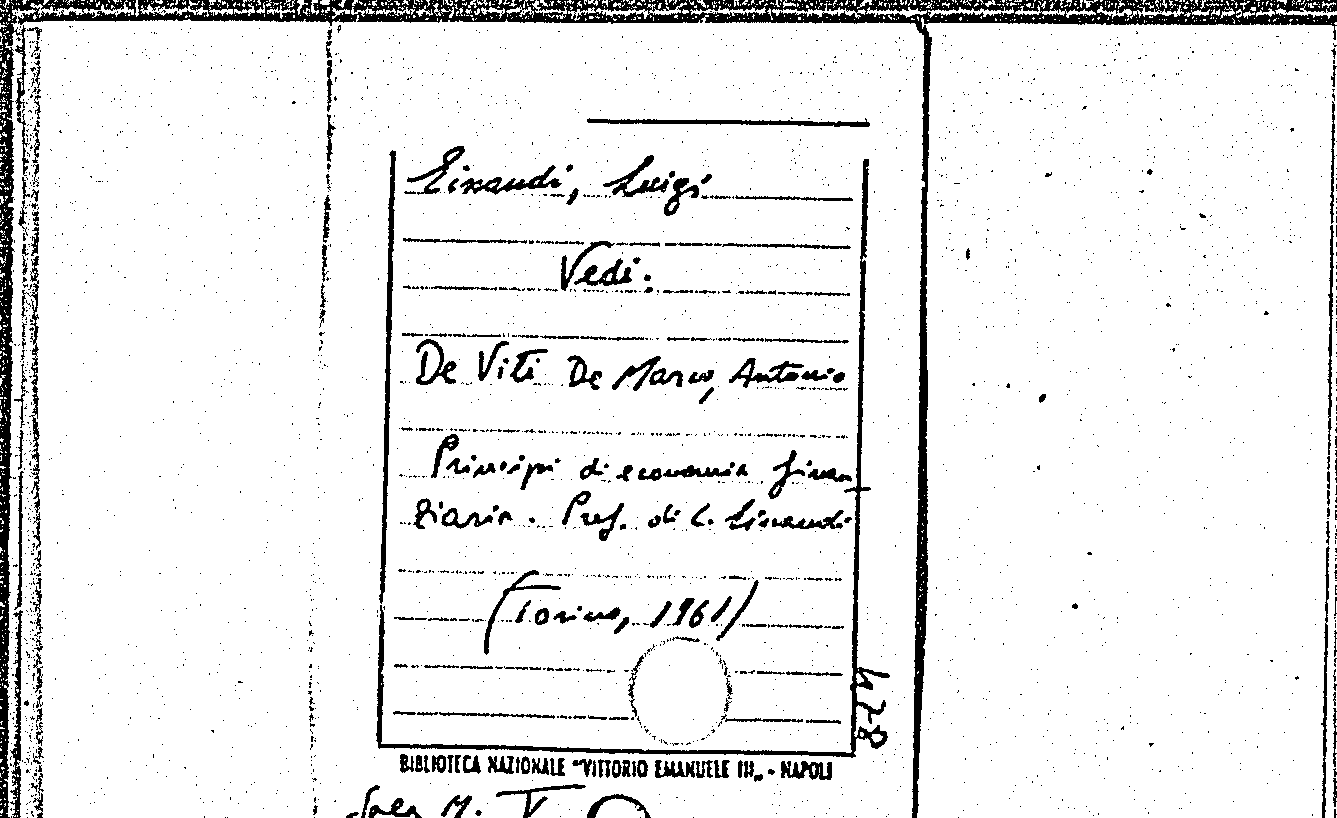 Einaudi, Luigi
Vedi:
De Viti De Marco, Antonio
Principi di economia finan
ziaria. Pref. di L. Einaudi
(Torino, 1961)
BIBLIOTECA NAZIONALE "VITTORIO EMANUELE III„ - NAPOLI
Sala M. V